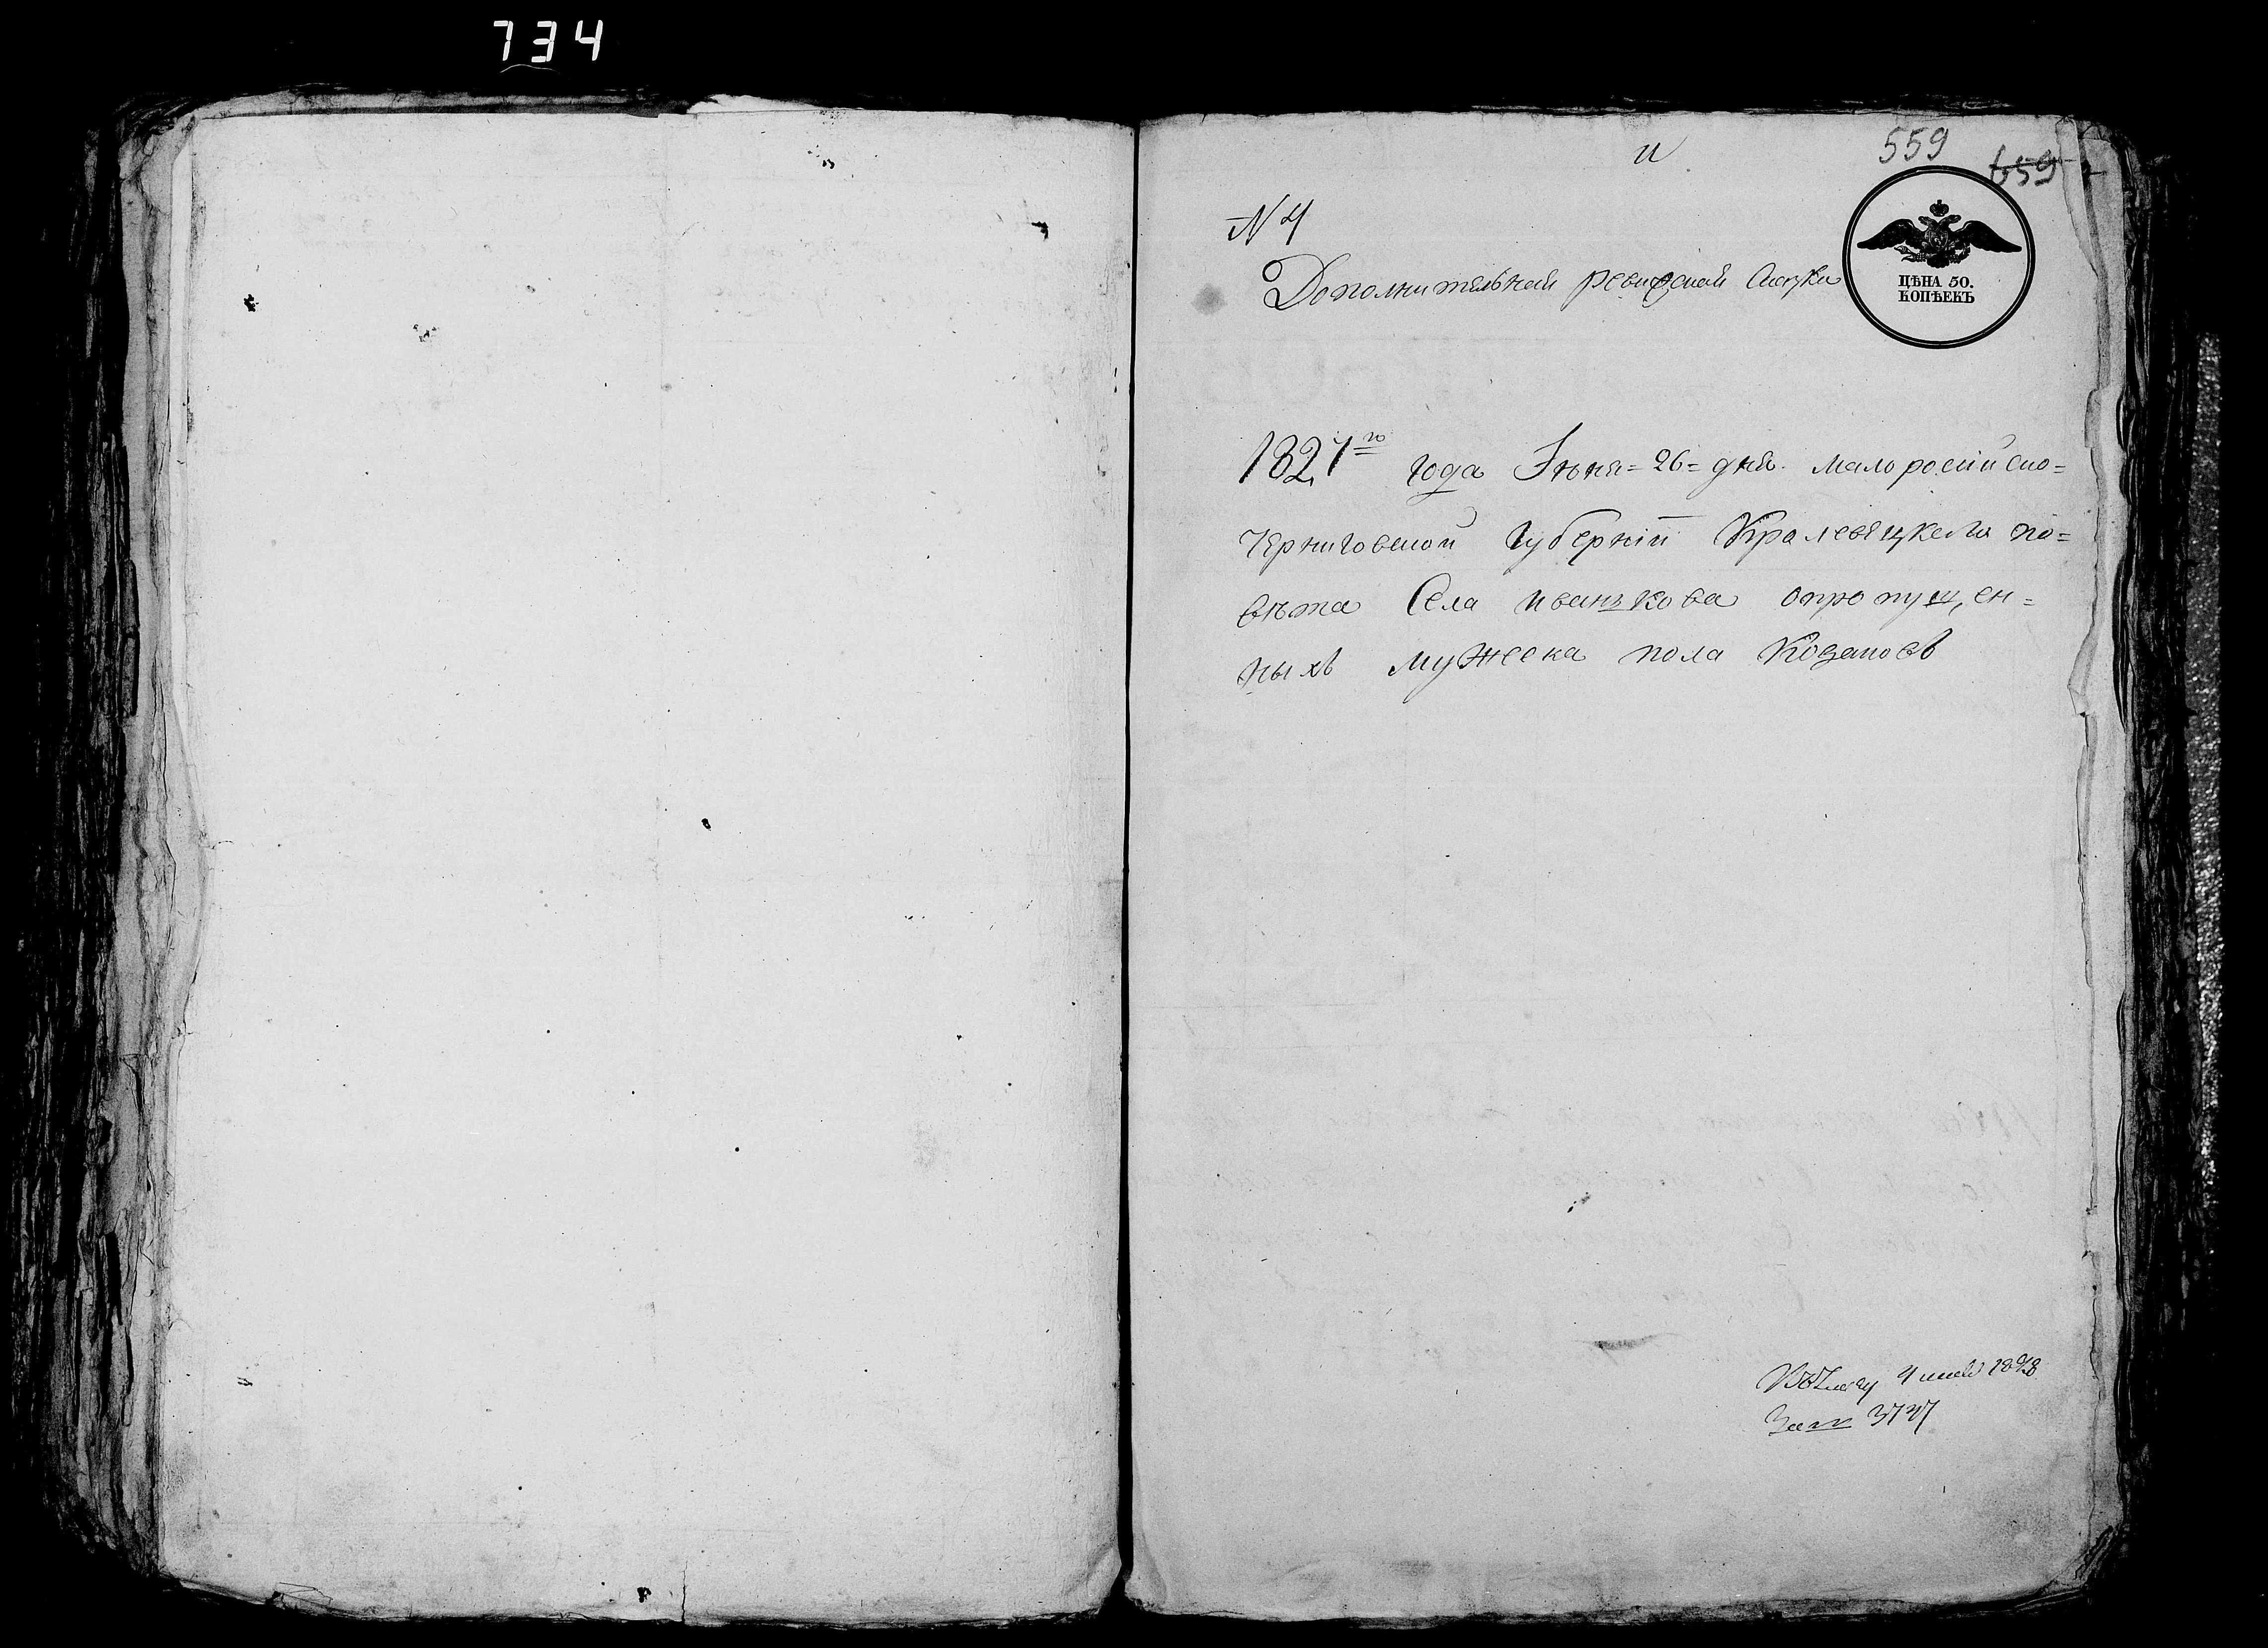 734
559
659
№ 4
Дополнительной ревизской Сказки
ЦѢНА 50.
КОПѢЕКЪ
1827го года Iюня = 26 = дня. малоросiйско =
Черниговской Губернiи Кролевецкого по =
вѣта Села иванькова опропущен =
ныхъ мужеска пола Козаковъ
3747